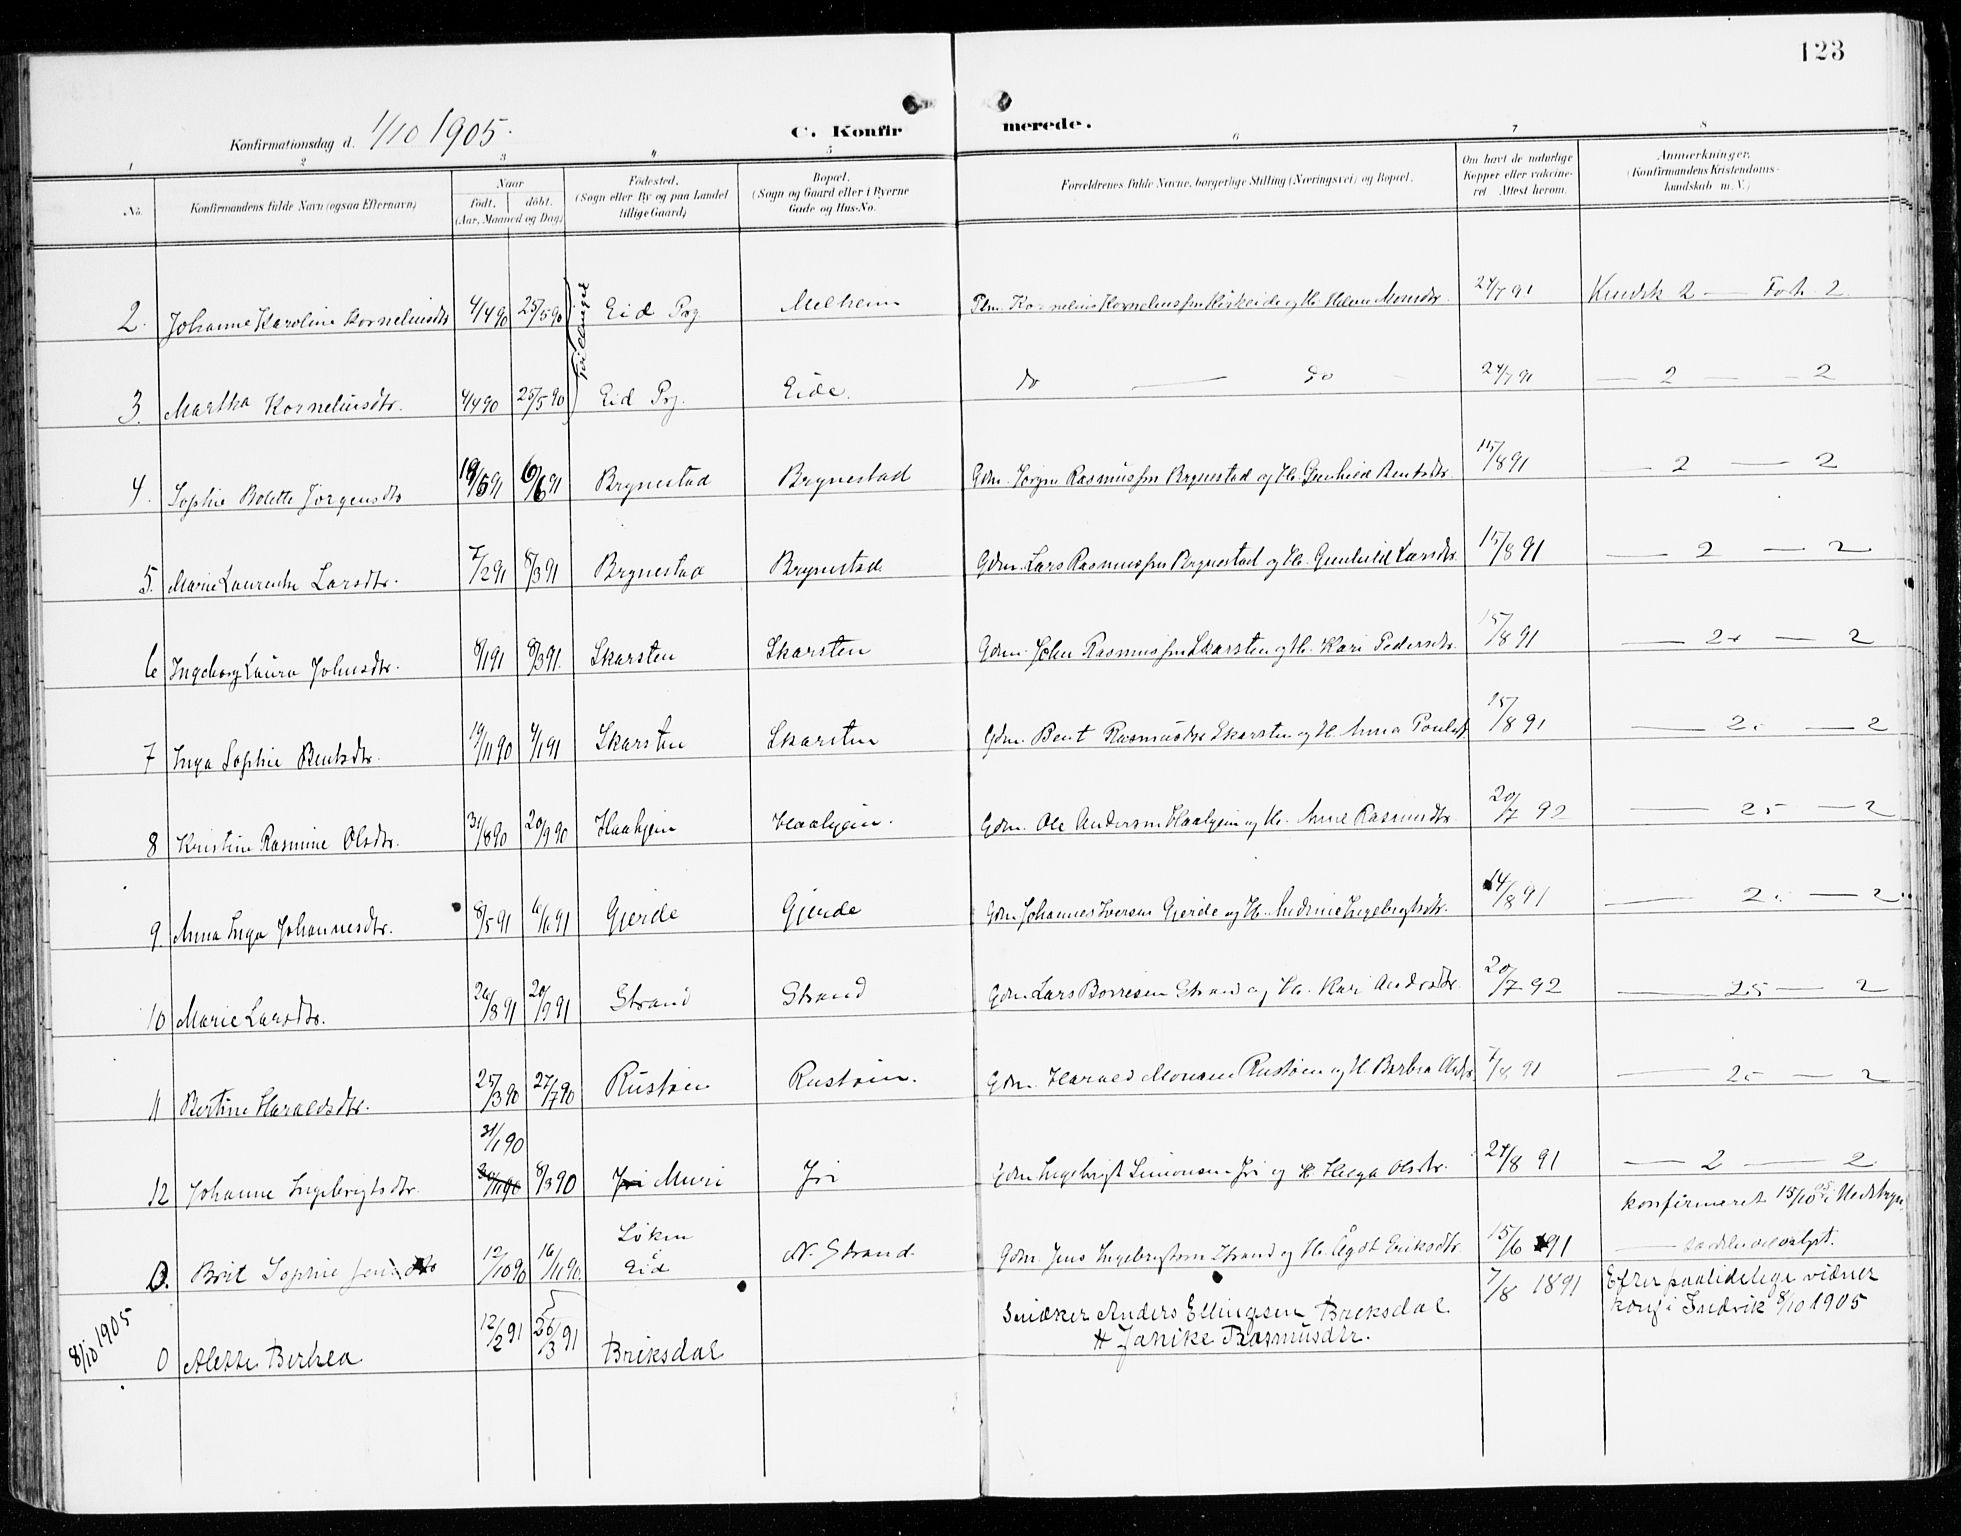 123
Konfirmationsdag d. 1/10 1905.
C. Konfirmerede.
1 2 3 4 5 6 7 8
No. Konfirmandens fulde Navn (ogsaa Efternavn) Naar født, døbt. (Aar, Maaned og Dag) Fødested. (Sogn eller By og paa Landet tillige Gaard) Bopæl. (Sogn og Gaard eller i Byerne Gade og Hus-No. Forældrenes fulde Navne, borgerlige Stilling (Næringsvei) og Bopæl. Om havt de naturlige Kopper eller vakcineret. Attest herom. Anmerkninger. (Konfirmandens Kristendomskundskab m. V.)
2. Johanne Karoline Korneliusdtr 4/4 90 25/5 90 Tvillinger Eid Prg Melheim Kornelius Korneliussen og H. Helene Monsdtr. 24/7 91 Kundsk 2 — Forh. 2
3. Martha Korneliusdtr. 4/4 90 25/5 90 Eid Prg. Eide. do — do 24/7 91 — 2 — 2
4. Sophie Bolette Jørgensdtr 19/5 91 6/6 91 Brynestad Brynestad Gdm. Jørgen Rasmussen Brynestad og H. Gunhild Bentsdtr. 15/8 91 — 2 — 2
5. Marie Laurentse Larsdtr. 7/2 91 8/3 91 Brynestad Brynestad Gdm. Lars Rasmussen Brynestad og H. Gunhild Larsdtr. 15/8 91 — 2 — 2
6 Ingeborg Laura Johnsdtr. 8/1 91 8/3 91. Skarsten Skarsten Gdm. John Rasmussen Skarsten og H. Kari Pedersdtr. 15/8 91 — 2 — 2
7 Inga Sophie Bentsdtr. 19/11 90 4/1 91 Skarsten Skarsten Gdm. Bent Rasmussen Skarsten og H. Anna 15/8 91 — 2. — 2
8 Kristine Rasmine Olsdtr. 31/8 90 20/9 90 Haahjem Haahjem. Gdm. Ole Andersen Haahjem og H. Anne Rasmusdtr. 20/7 92 — 2.5 — 2
9 Anna Inga Johannesdtr. 8/5 91 91 Gjerde Gjerde Gdm Johannes Iversen Gjerde og H. Ingebrigtsdtr. 14/8 91 — 2. — 2
10 Marie Larsdtr. 26/8 91 20/9 91 Strand Strand Gdm Lars Børresen Strand og H. Kari Andersdtr. 20/7 92 — 2.5 — 2
11 Bertine Haraldsdtr. 25/3 90 27/7 90 Rustøen Rustøen. Gdm. Harald Monsen Rustøen og H Barbra Olsdtr. 7/8 91 — 2 — 2
31/1 90
12 Johanne Ingebrigtsdtr. 8/3 90 Jri Muri Jri Gdm Ingebrigt Simonsen Jri og H Helga Olsdtr. 24/8 91 — 2 — 2
konfirmeret 15/10 05 i Nedstryn
0. Brit Sophie Jensdtr 12/10 90 16/11 90. Løken Eid N. Strand Gdm. Jens Ingebrigtsen Strand og H. Eriksdtr. 15/6 91
8/10 1905 0 Alette Berthea 12/2 91 26/3 91 Briksdal Snedker Anders Ellingsen Briksdal 7/8 1891 Efter paalidelige vidner
H Janike Rasmusdtr. konf i Indvik 8/10 1905